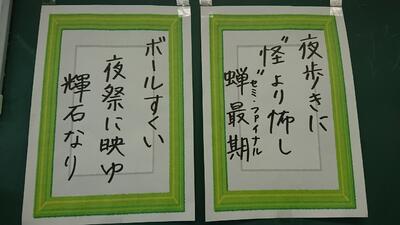 夜歩きに
“怪”より怖し
蝉最期
ゼミ・ファイナル
ボールすくい
夜祭に映ゆ
輝石なり